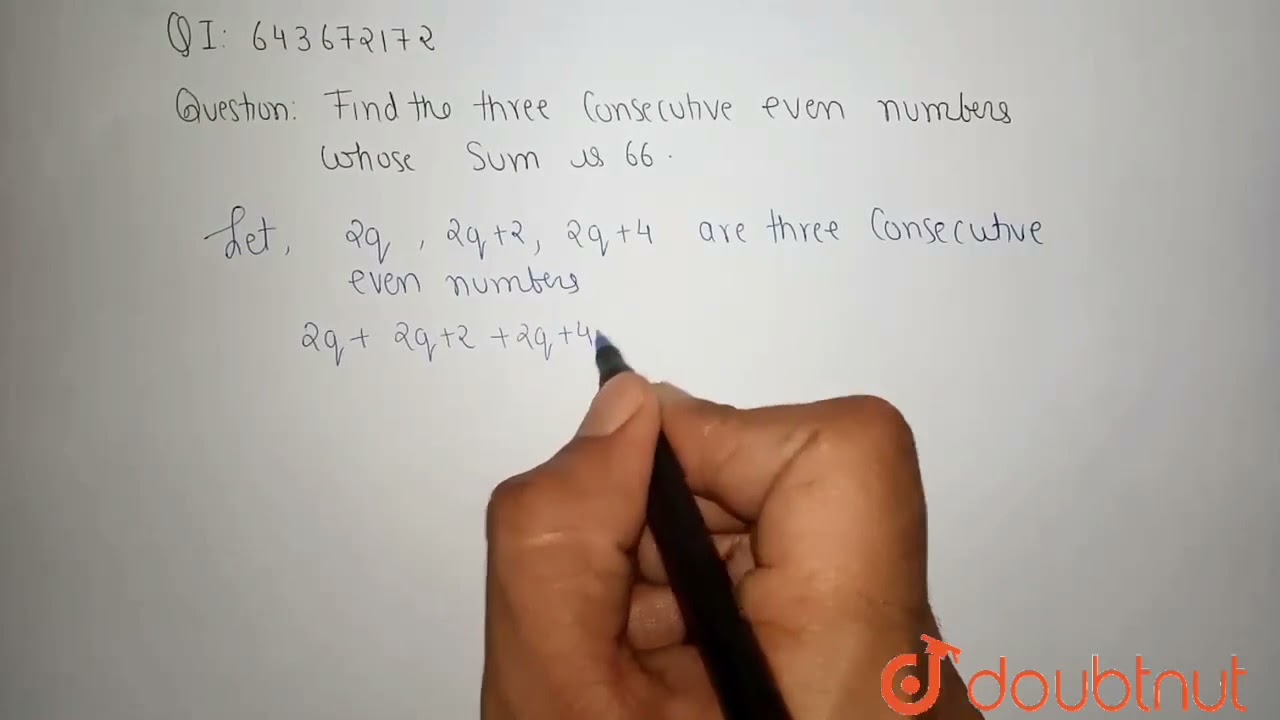 QI: 643672172
Question: Find the three Consecutive even numbers
whose Sum is 66.
Let, 2q, 2q+2, 2q+4 are three Consecutive
even numbers
2q+ 2q+2 +2q+4
doubtnut